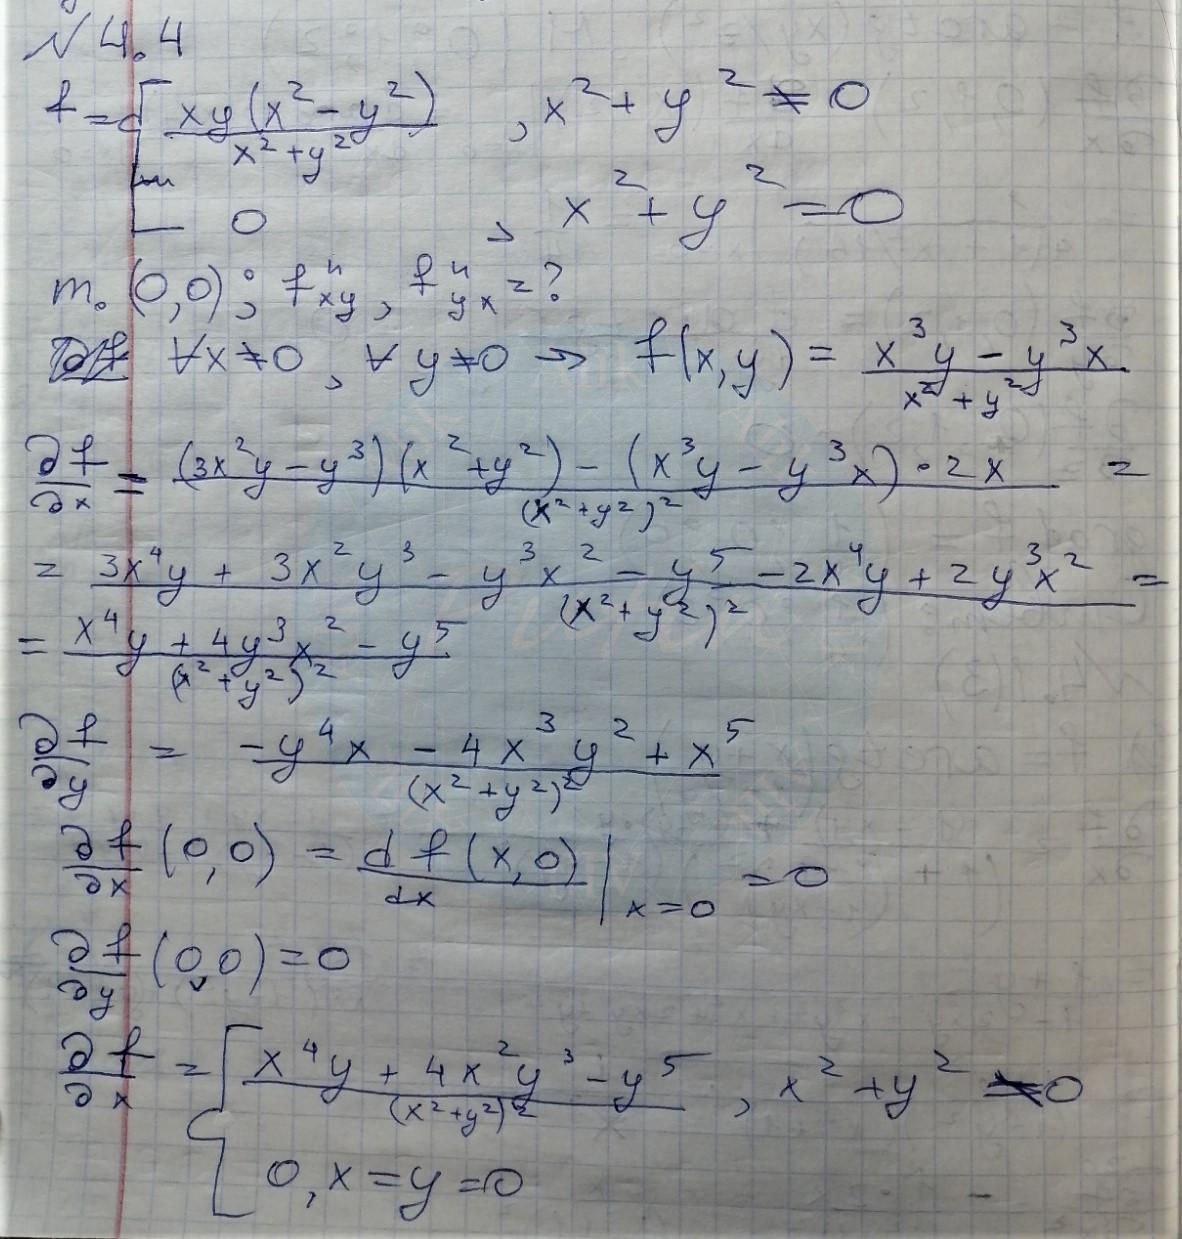 № 4.4
f = { xy(x² − y²) / (x² + y²) , x² + y² ≠ 0
0 , x² + y² = 0
т. (0,0) ; f''xy , f''yx = ?
∀x ≠ 0 , ∀y ≠ 0 → f(x,y) = (x³y − y³x) / (x² + y²)
∂f/∂x = ((3x²y − y³)(x² + y²) − (x³y − y³x) · 2x) / (x² + y²)² =
= (3x⁴y + 3x²y³ − y³x² − y⁵ − 2x⁴y + 2y³x²) / (x² + y²)² =
= (x⁴y + 4y³x² − y⁵) / (x² + y²)²
∂f/∂y = (−y⁴x − 4x³y² + x⁵) / (x² + y²)²
∂f/∂x (0,0) = df(x,0)/dx |x=0 = 0
∂f/∂y (0,0) = 0
∂f/∂x = { (x⁴y + 4x²y³ − y⁵) / (x² + y²)² , x² + y² ≠ 0
0, x = y = 0